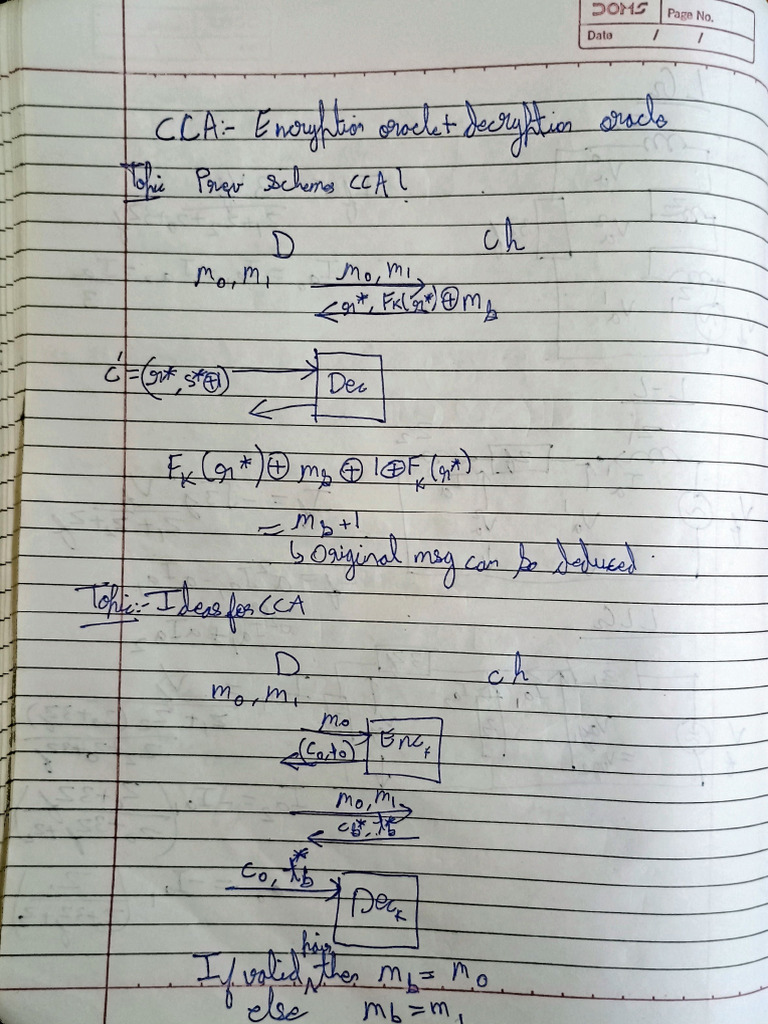 DOMS Page No.
Date / /
CCA:- Encryption oracle + decryption oracle
Topic Prev Schemes CCA
D ch
m₀, m₁ m₀, m₁
r*, Fₖ(r*) ⊕ m_b
c' = (r*, s*⊕1) Dec
Fₖ(r*) ⊕ m_b ⊕ 1 ⊕ Fₖ(r*)
= m_b + 1
↳ Original msg can be deduced
Topic:- Ideas for CCA
D ch
m₀, m₁
m₀
(c₀, t₀) Enc
m₀, m₁
c_b*, t_b*
c₀, t_b* Decₖ
If valid pair then m_b = m₀
else m_b = m₁